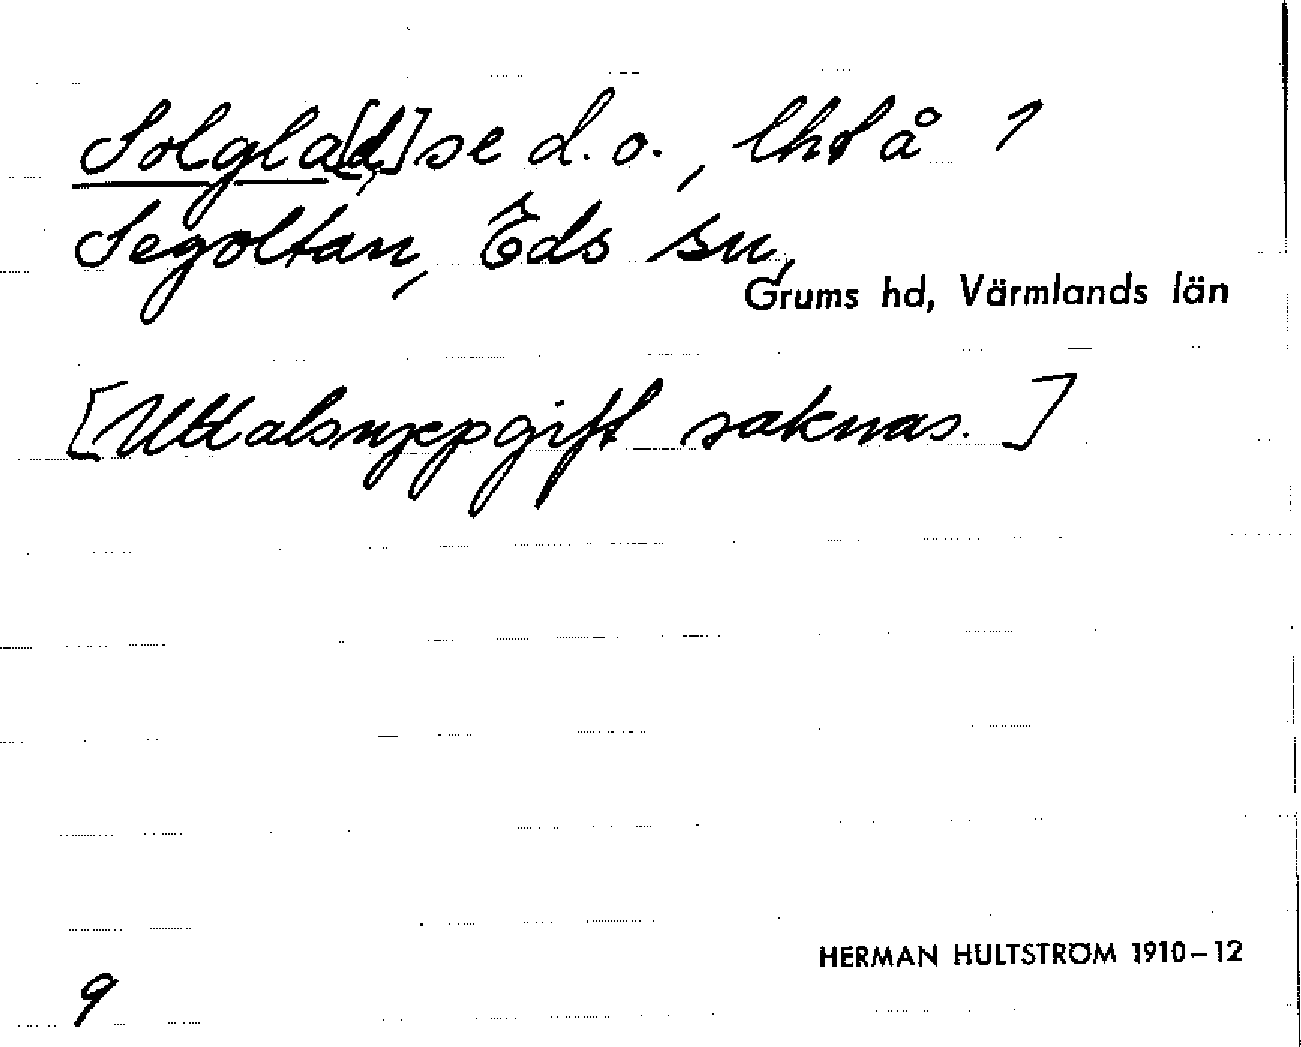 Solgla[d,] se d.o., lht å 1
Segoltan, Eds sn,
Grums hd, Värmlands län
[Uttalsuppgift saknas.]
HERMAN HULTSTRÖM 1910–12
9